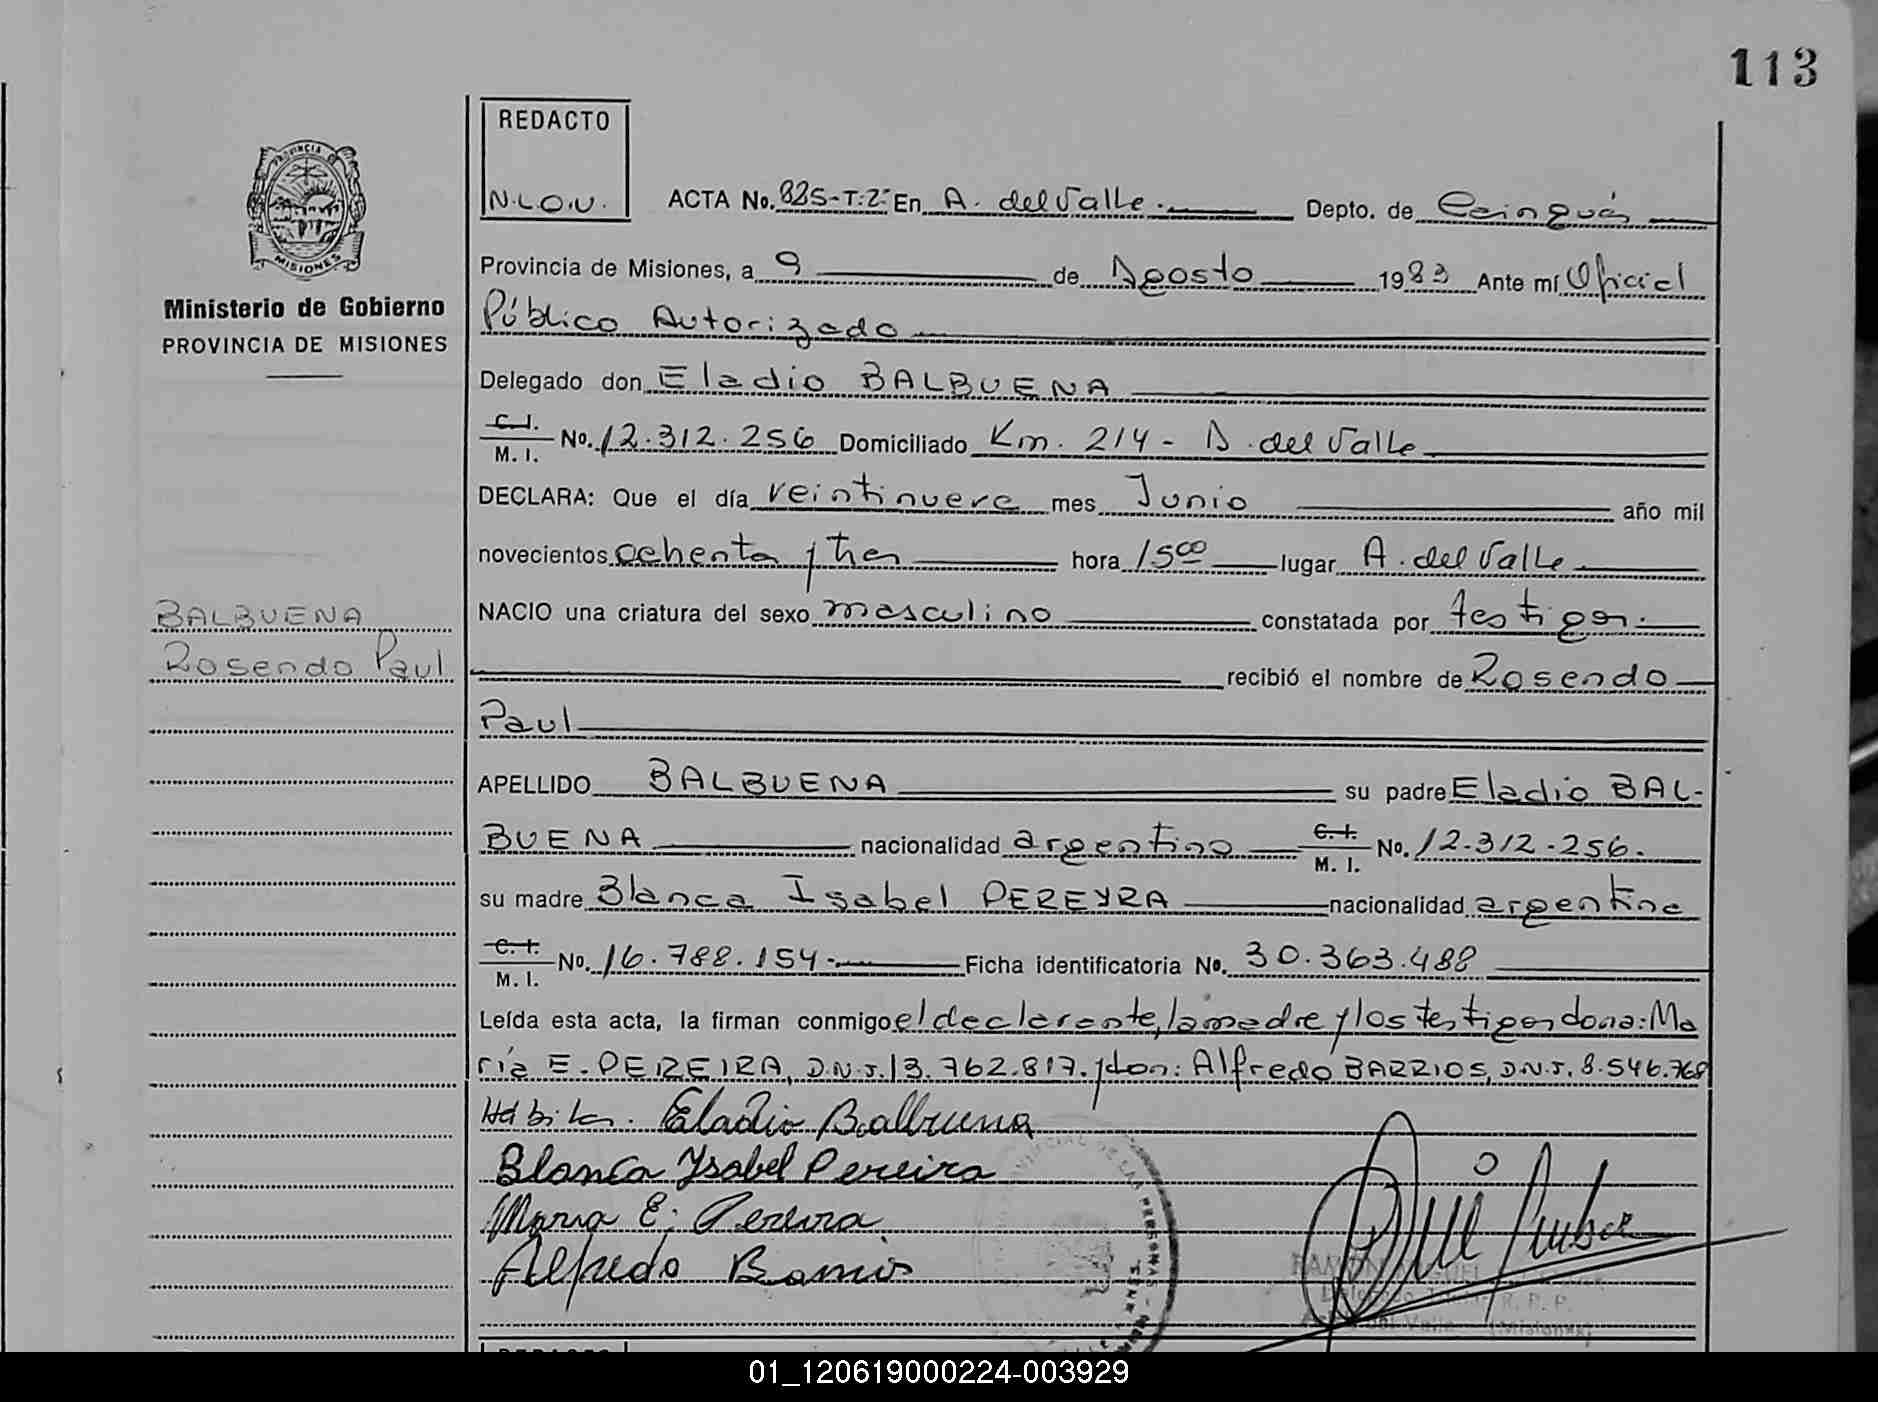 113
REDACTO
N.L.O.V.
ACTA No. 825-T:2º En A. del Valle.
Depto. de Cainguás
PROVINCIA DE
MISIONES
Ministerio de Gobierno
PROVINCIA DE MISIONES
Provincia de Misiones, a 9 de Agosto 1983 Ante mí Oficial
Público Autorizado
Delegado don Eladio BALBUENA
C. I.
M. I. No. 12.312.256 Domiciliado Km. 214 - A. del Valle
DECLARA: Que el día veintinueve mes Junio año mil
novecientos ochenta y tres hora 15oo lugar A. del Valle
NACIO una criatura del sexo masculino constatada por testigos.
recibió el nombre de Rosendo
Paul
BALBUENA
Rosendo Paul
APELLIDO BALBUENA su padre Eladio BAL-
BUENA nacionalidad argentino C. I. M. I. No. 12.312.256.
su madre Blanca Isabel PEREYRA nacionalidad argentina
C. I.
M. I. No. 16.788.154.- Ficha identificatoria No. 30.363.488
Leída esta acta, la firman conmigo el declarante, la madre y los testigos dona: Ma
ría E. PEREIRA, D.N.I. 13.762.817. y don: Alfredo BARRIOS, D.N.I. 8.546.768
Hábiles. Eladio Balbuena
Blanca Ysabel Pereira
Maria E. Pereira
Alfredo Barrios
PROVINCIAL DE LAS PERSONAS
RAMON MIGUEL
Delegado R. P. P.
del Valle (Misiones)
REDACTO
01_120619000224-003929